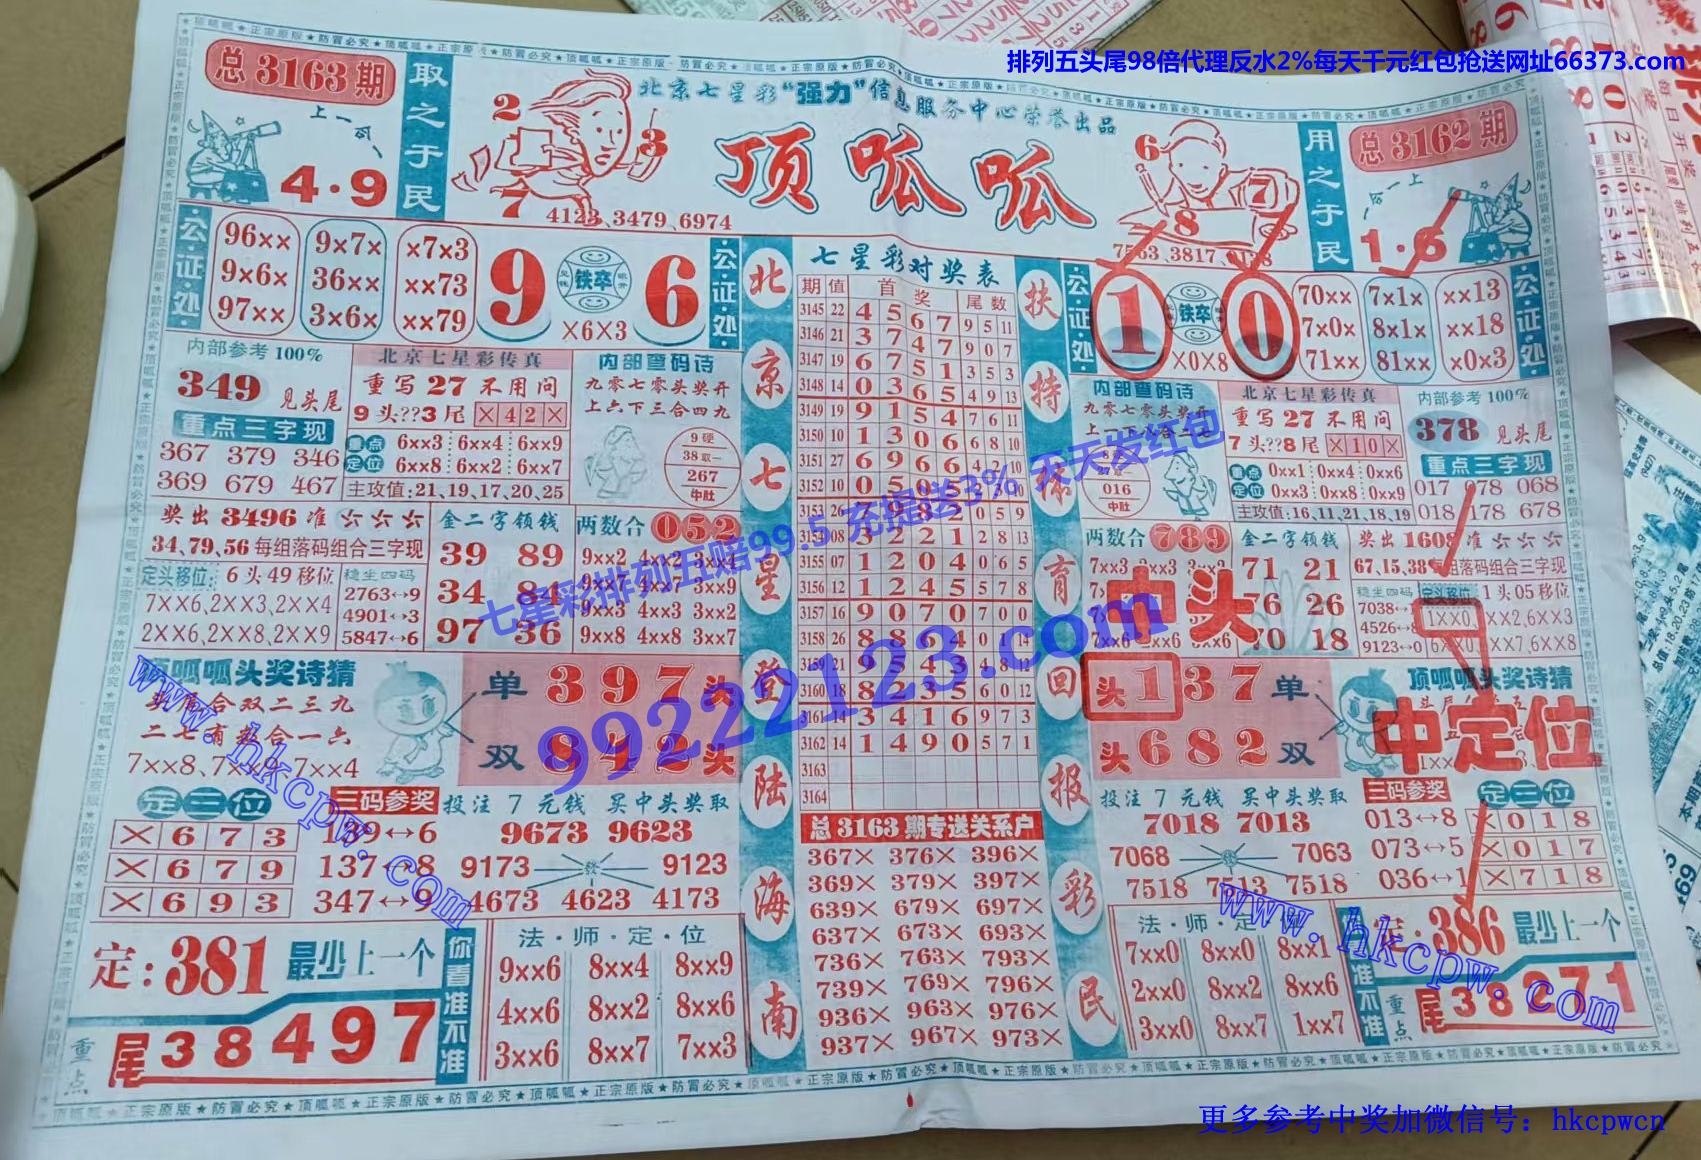 排列五头尾98倍代理反水2%每天千元红包抢送网址66373.com
★顶呱呱★正宗原版★防冒必究★
总3163期
取之于民
北京七星彩“强力”信息服务中心荣誉出品
顶呱呱
用之于民
总3162期
上一码
4·9
2
3
7
4123、3479、6974
6
7
8
1·6
公证处
96×× 9×7× ×7×3
9×6× 36×× ××73
97×× 3×6× ××79
9 铁卒 6
×6×3
公证处
内部参考100%
349 见头尾
重点三字现
367 379 346
369 679 467
北京七星彩传真
重写27不用问
9头??3尾 ×42×
重点定位
6××3 6××4 6××9
6××8 6××2 6××7
主攻值:21、19、17、20、25
内部查码诗
九零七零头奖开
上六下三合四九
9硬
38取一
267
中肚
奖出3496准☆☆☆
34、79、56每组落码组合三字现
定头移位: 6头49移位
7××6、2××3、2××4
2××6、2××8、2××9
稳坐四码
2763↔9
4901↔3
5847↔6
金二字领钱
39 89
34 84
97 36
两数合 052
9××2 4××2 3××4
9××7 4××7 3××9
9××3 4××3 3××2
9××8 4××8 3××7
顶呱呱头奖诗猜
二七有数合一六
7××8、7××9、7××4
单 397 头
双 842 头
定三位
×673
×679
×693
三码参奖
139↔6
137↔8
347↔9
投注7元钱 买中头奖取
9673 9623
9173 發 9123
4673 4623 4173
定:381 最少上一个
重点
尾38497
你看准不准
法·师·定·位
9××6 8××4 8××9
4××6 8××2 8××6
3××6 8××7 7××3
北京七星登陆海南
七星彩对奖表
期 值 首奖 尾数
3145 22 4 5 6 7 9 5 11
3146 21 3 7 4 7 9 0 7
3147 19 6 7 5 1 3 5 3
3148 14 0 3 6 5 4 9 13
3149 19 9 1 5 4 7 6 11
3150 10 1 3 0 6 6 8 10
3151 27 6 9 6 6 4 2 10
3152 10 0 5 0 5
3153 26 7 9 8 2 0 5 9
3154 08 3 2 2 1 2 8 13
3155 07 1 2 0 4 0 6 5
3156 12 1 2 4 5 7 5 8
3157 16 9 0 7 0 7 0
3158 26 8 8 6 4 0 1 14
3159 21 9 5 4 3 4 8 12
3160 18 8 2 3 5 6 0 12
3161 14 3 4 1 6 9 7 3
3162 14 1 4 9 0 5 7 1
3163
3164
总3163期专送关系户
367× 376× 396×
369× 379× 397×
639× 679× 697×
637× 673× 693×
736× 763× 793×
739× 769× 796×
936× 963× 976×
937× 967× 973×
扶持体育回报彩民
公证处
1 铁卒 0
×0×8
70×× 7×1× ××13
7×0× 8×1× ××18
71×× 81×× ×0×3
公证处
内部查码诗
九零七零头奖开
016
中肚
北京七星彩传真
重写27不用问
7头??8尾 ×10×
重点定位
0××1 0××4 0××6
0××3 0××8 0××9
主攻值:16、11、21、18、19
内部参考100%
378 见头尾
重点三字现
017 078 068
018 178 678
两数合 789
中头
金二字领钱
71 21
76 26
70 18
奖出1608准☆☆☆
67、15、38每组落码组合三字现
稳坐四码
9123↔0
定头移位 1头05移位
1××0
头 137 单
头 682 双
顶呱呱头奖诗猜
中定位
投注7元钱 买中头奖取
7018 7013
7068 發 7063
7518 7513 7518
三码参奖
013↔8
073↔5
036↔1
定三位
×018
×017
×718
法·师·定·位
7××0 8××0 8××1
2××0 8××2 8××6
3××0 8××7 1××7
定:386 最少上一个
重点
尾38271
七星彩排列五赔99.5 充提送3% 天天发红包
99222123.com
www.hkcpw.com
www.hkcpw.com
更多参考中奖加微信号：hkcpwcn